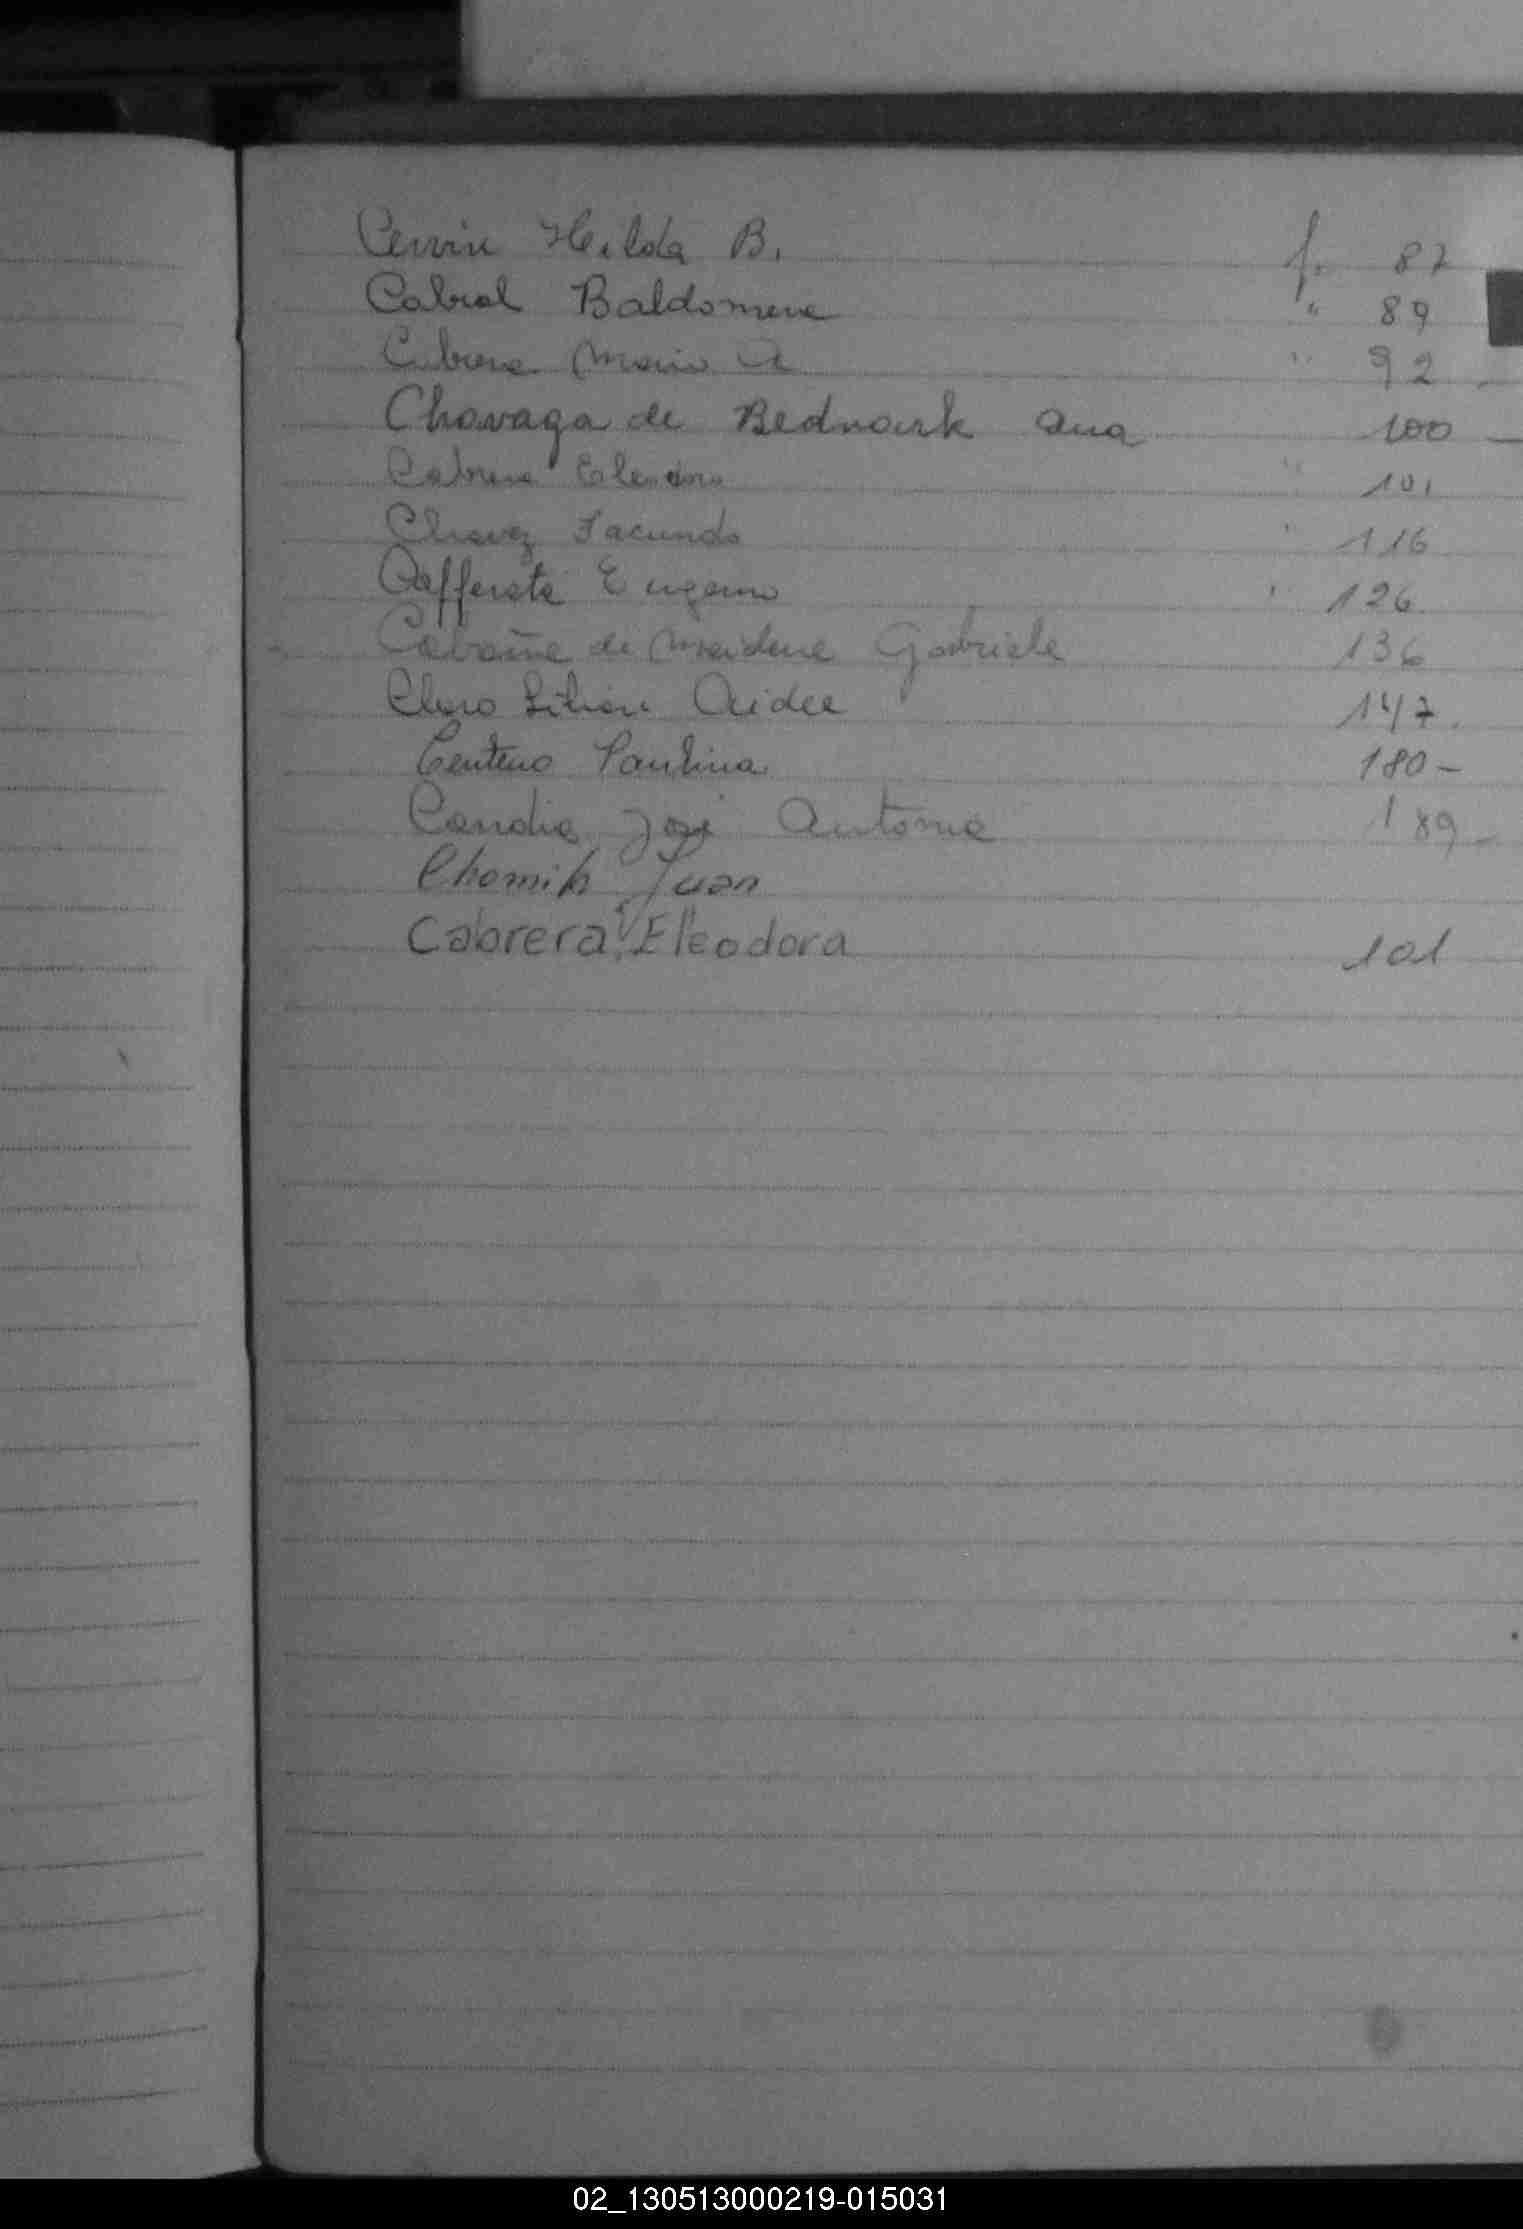 Cervin Hilda B. f. 87
Cabral Baldomera " 89
Cabrera Maria A " 92
Chavaga de Bednark Ana 100
Cabrera Eleodora " 101
Chavez Facundo " 116
Cafferata Eugenio " 126
Cabaña de Gabriela 136
Claro Lilian Aidee 147
Centeno Paulina 180-
Candia José Antonio 189
Chomih Juan
Cabrera, Eleodora 101
02_130513000219-015031